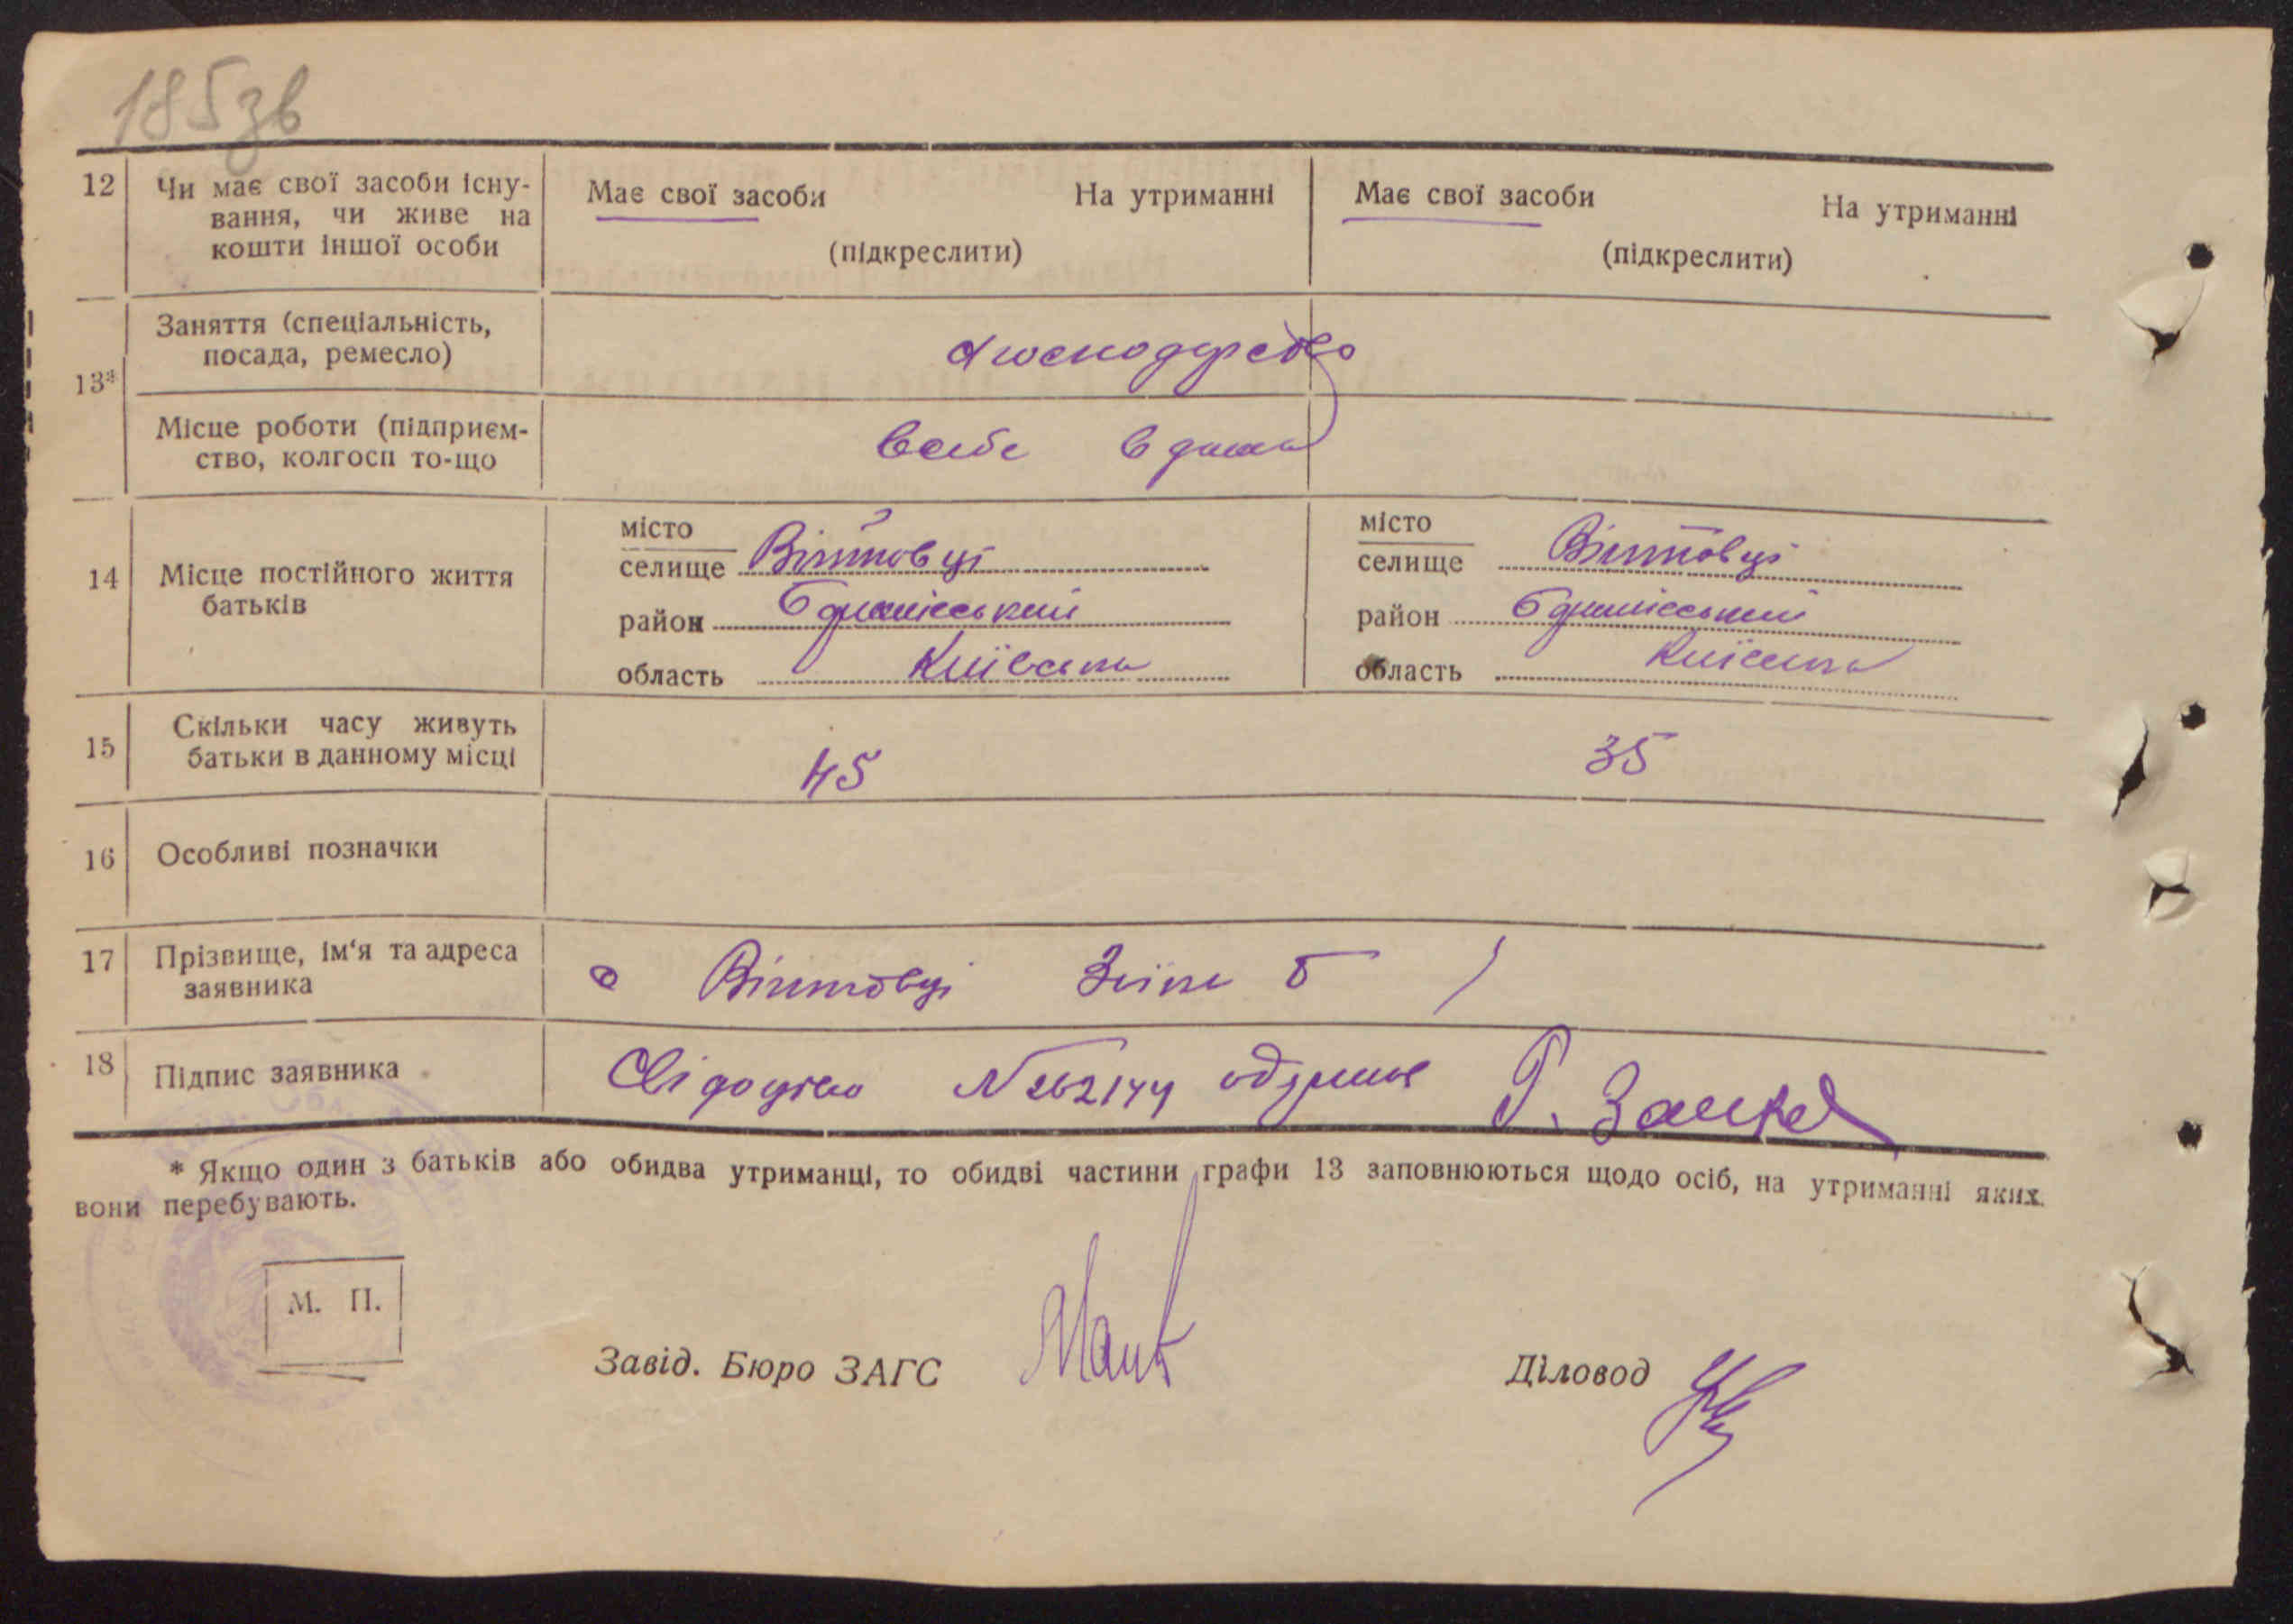 185зв
12 Чи має свої засоби існу-
вання, чи живе на
кошти іншої особи
Має свої засоби На утриманні
(підкреслити)
Має свої засоби На утриманні
(підкреслити)
13* Заняття (спеціальність,
посада, ремесло)
Місце роботи (підприєм-
ство, колгосп то-що
в себе вдома
14 Місце постійного життя
батьків
місто
селище Вінтовці
район
область Київська
місто
селище Вінтовці
район
область Київська
15 Скільки часу живуть
батьки в данному місці
45 35
16 Особливі позначки
17 Прізвище, ім'я та адреса
заявника
Вінтовці
18 Підпис заявника
Свідоцтво № одержав
* Якщо один з батьків або обидва утриманці, то обидві частини графи 13 заповнюються щодо осіб, на утриманні яких
вони перебувають.
М. П.
Завід. Бюро ЗАГС Діловод